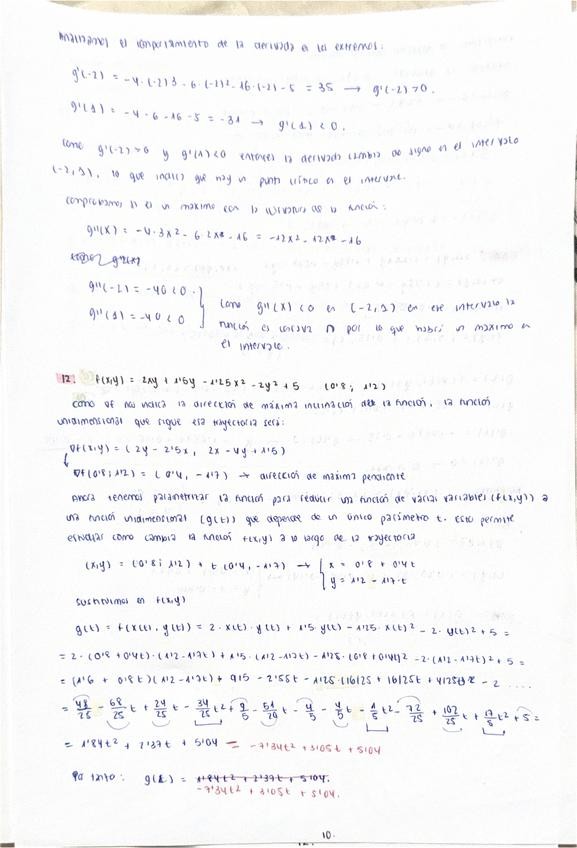 Analizamos el comportamiento de la derivada en los extremos:
g'(-2) = -4·(-2)3 - 6·(-2)2 - 16·(-2) - 5 = 35 → g'(-2) > 0.
g'(1) = -4 - 6 - 16 - 5 = -31 → g'(1) < 0.
Como g'(-2) > 0 y g'(1) < 0 entonces la derivada cambia de signo en el intervalo
(-2, 1), lo que indica que hay un punto crítico en el intervalo.
Comprobamos si es un máximo con la curvatura de la función:
g''(x) = -4·3x2 - 6·2x - 16 = -12x2 - 12x - 16
g''(-2) = -40 < 0.
g''(1) = -40 < 0
Como g''(x) < 0 en (-2, 1) en ese intervalo la
función es cóncava ∩ por lo que habrá un máximo en
el intervalo.
12. f(x,y) = 2xy + 1'5y - 1'25x2 - 2y2 + 5 (0'8; 1'2)
Como ∇f nos indica la dirección de máxima inclinación de la función, la función
unidimensional que sigue esa trayectoria será:
∇f(x,y) = (2y - 2'5x, 2x - 4y + 1'5)
∇f(0'8; 1'2) = (0'4, -1'7) → dirección de máxima pendiente
Ahora tenemos parametrizar la función para reducir una función de varias variables (f(x,y)) a
una función unidimensional (g(t)) que depende de un único parámetro t. Esto permite
estudiar como cambia la función f(x,y) a lo largo de la trayectoria
(x,y) = (0'8; 1'2) + t(0'4, -1'7) → { x = 0'8 + 0'4t
y = 1'2 - 1'7·t
Sustituimos en f(x,y)
g(t) = f(x(t), y(t)) = 2·x(t)·y(t) + 1'5·y(t) - 1'25·x(t)2 - 2·y(t)2 + 5 =
= 2·(0'8 + 0'4t)·(1'2 - 1'7t) + 1'5·(1'2 - 1'7t) - 1'25·(0'8 + 0'4t)2 - 2·(1'2 - 1'7t)2 + 5 =
= (1'6 + 0'8t)(1'2 - 1'7t) + 9/5 - 2'55t - 1'25·(16/25 + 16/25t + 4/25t2 - 2 ....
= 48/25 - 68/25 t + 24/25 t - 34/25 t2 + 9/5 - 51/20 t - 4/5 - 4/5 t - 1/5 t2 - 72/25 + 102/25 t + 17/5 t2 + 5 =
= 1'84t2 + 2'37t + 5'04 = -7'34t2 + 3'05t + 5'04
Por tanto: g(t) = 1'84t2 + 2'37t + 5'04.
-7'34t2 + 3'05t + 5'04.
10.